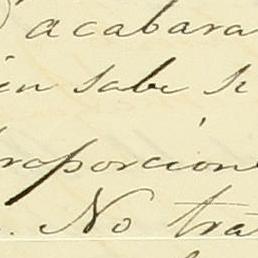 acabara
en sabe si
roporcion
. No tra